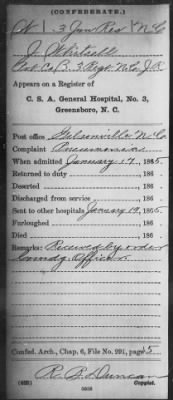 (CONFEDERATE.)
W 1 3 Jun Res N C
J Whitsell
Co. B. 3 Regt N.C. J.R.
Appears on a Register of
C. S. A. General Hospital, No. 3,
Greensboro, N. C.
Post office Gibsonville N C
Complaint Pneumonia
When admitted January 17, 1865
Returned to duty , 186 .
Deserted , 186 .
Discharged from service , 186 .
Sent to other hospitals January 19, 1865
Furloughed , 186 .
Died , 186 .
Remarks: Received by order
Comdg Officer
Confed. Arch., Chap. 6, File No. 291, page 5
R. B. Duncan
Copyist.